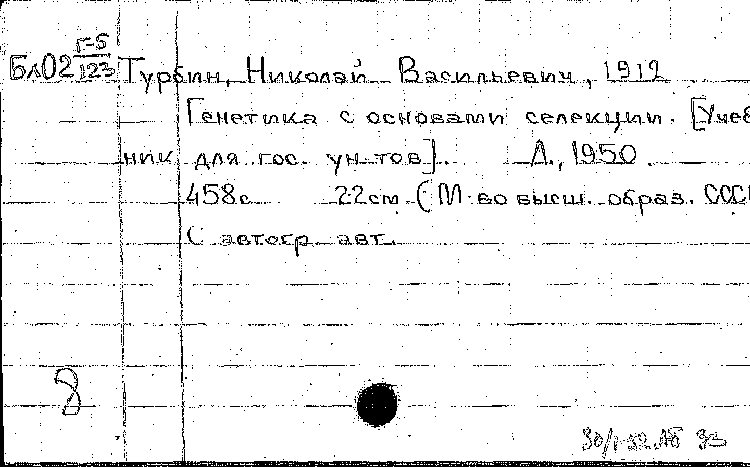 БлО2 Г-5/123 Турбин, Николай Васильевич, 1912
Генетика с основами селекции. [Учеб
ник для гос. ун-тов]. Л., 1950.
458с 22см (М-во высш. образ. СССР
С автогр. авт.
8